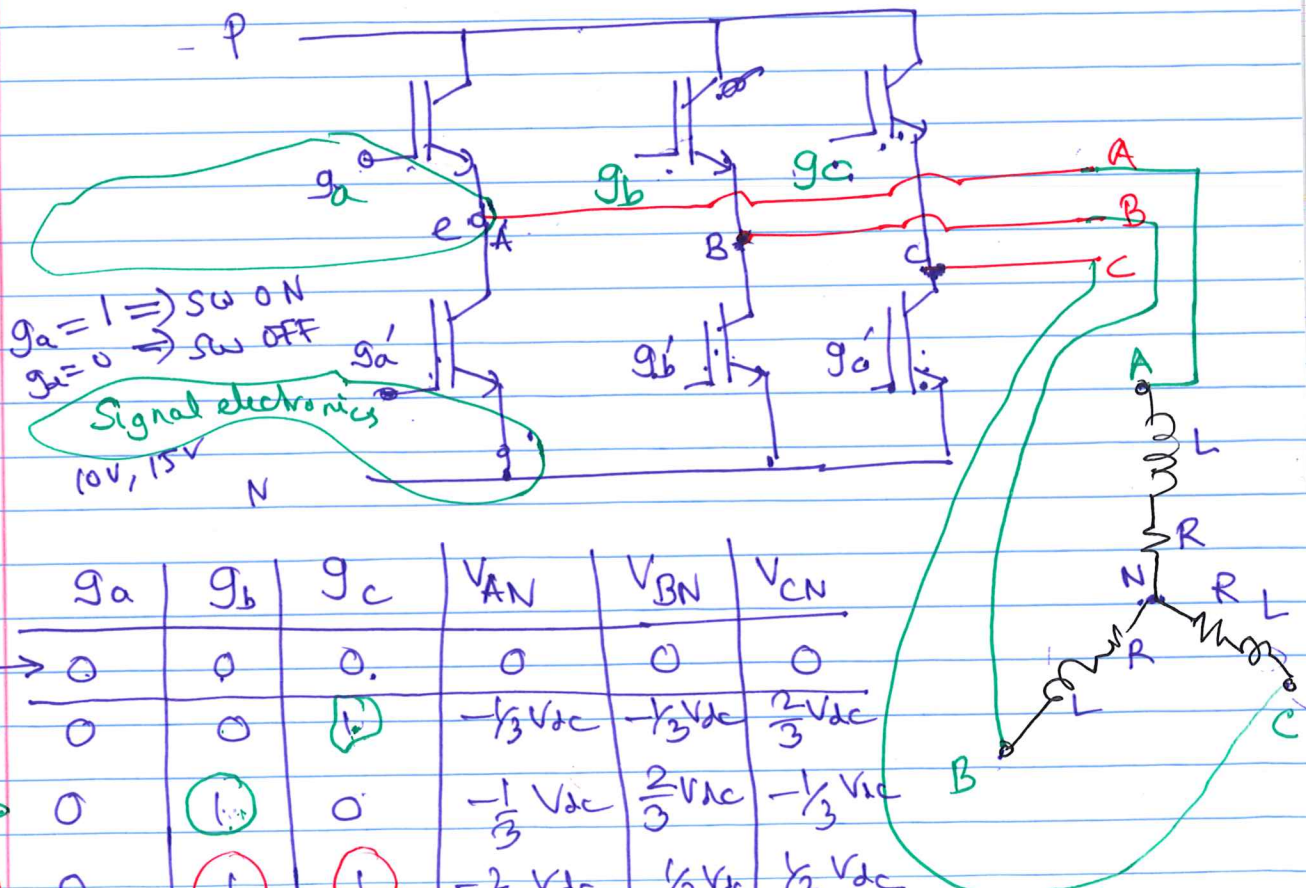 - P
ga
gb
gc
A
e A
B
B
C
C
ga = 1 ⇒ SW ON
ga = 0 ⇒ SW OFF
ga'
gb'
gc'
A
Signal electronics
10V, 15V
L
N
R
N
R L
R
L
C
B
ga gb gc VAN VBN VCN
→ 0 0 0. 0 0 0
0 0 1 -1/3 Vdc -1/3 Vdc 2/3 Vdc
0 1 0 -1/3 Vdc 2/3 Vdc -1/3 Vdc
0 1 1 -2 Vdc 1/3 Vdc 1/3 Vdc